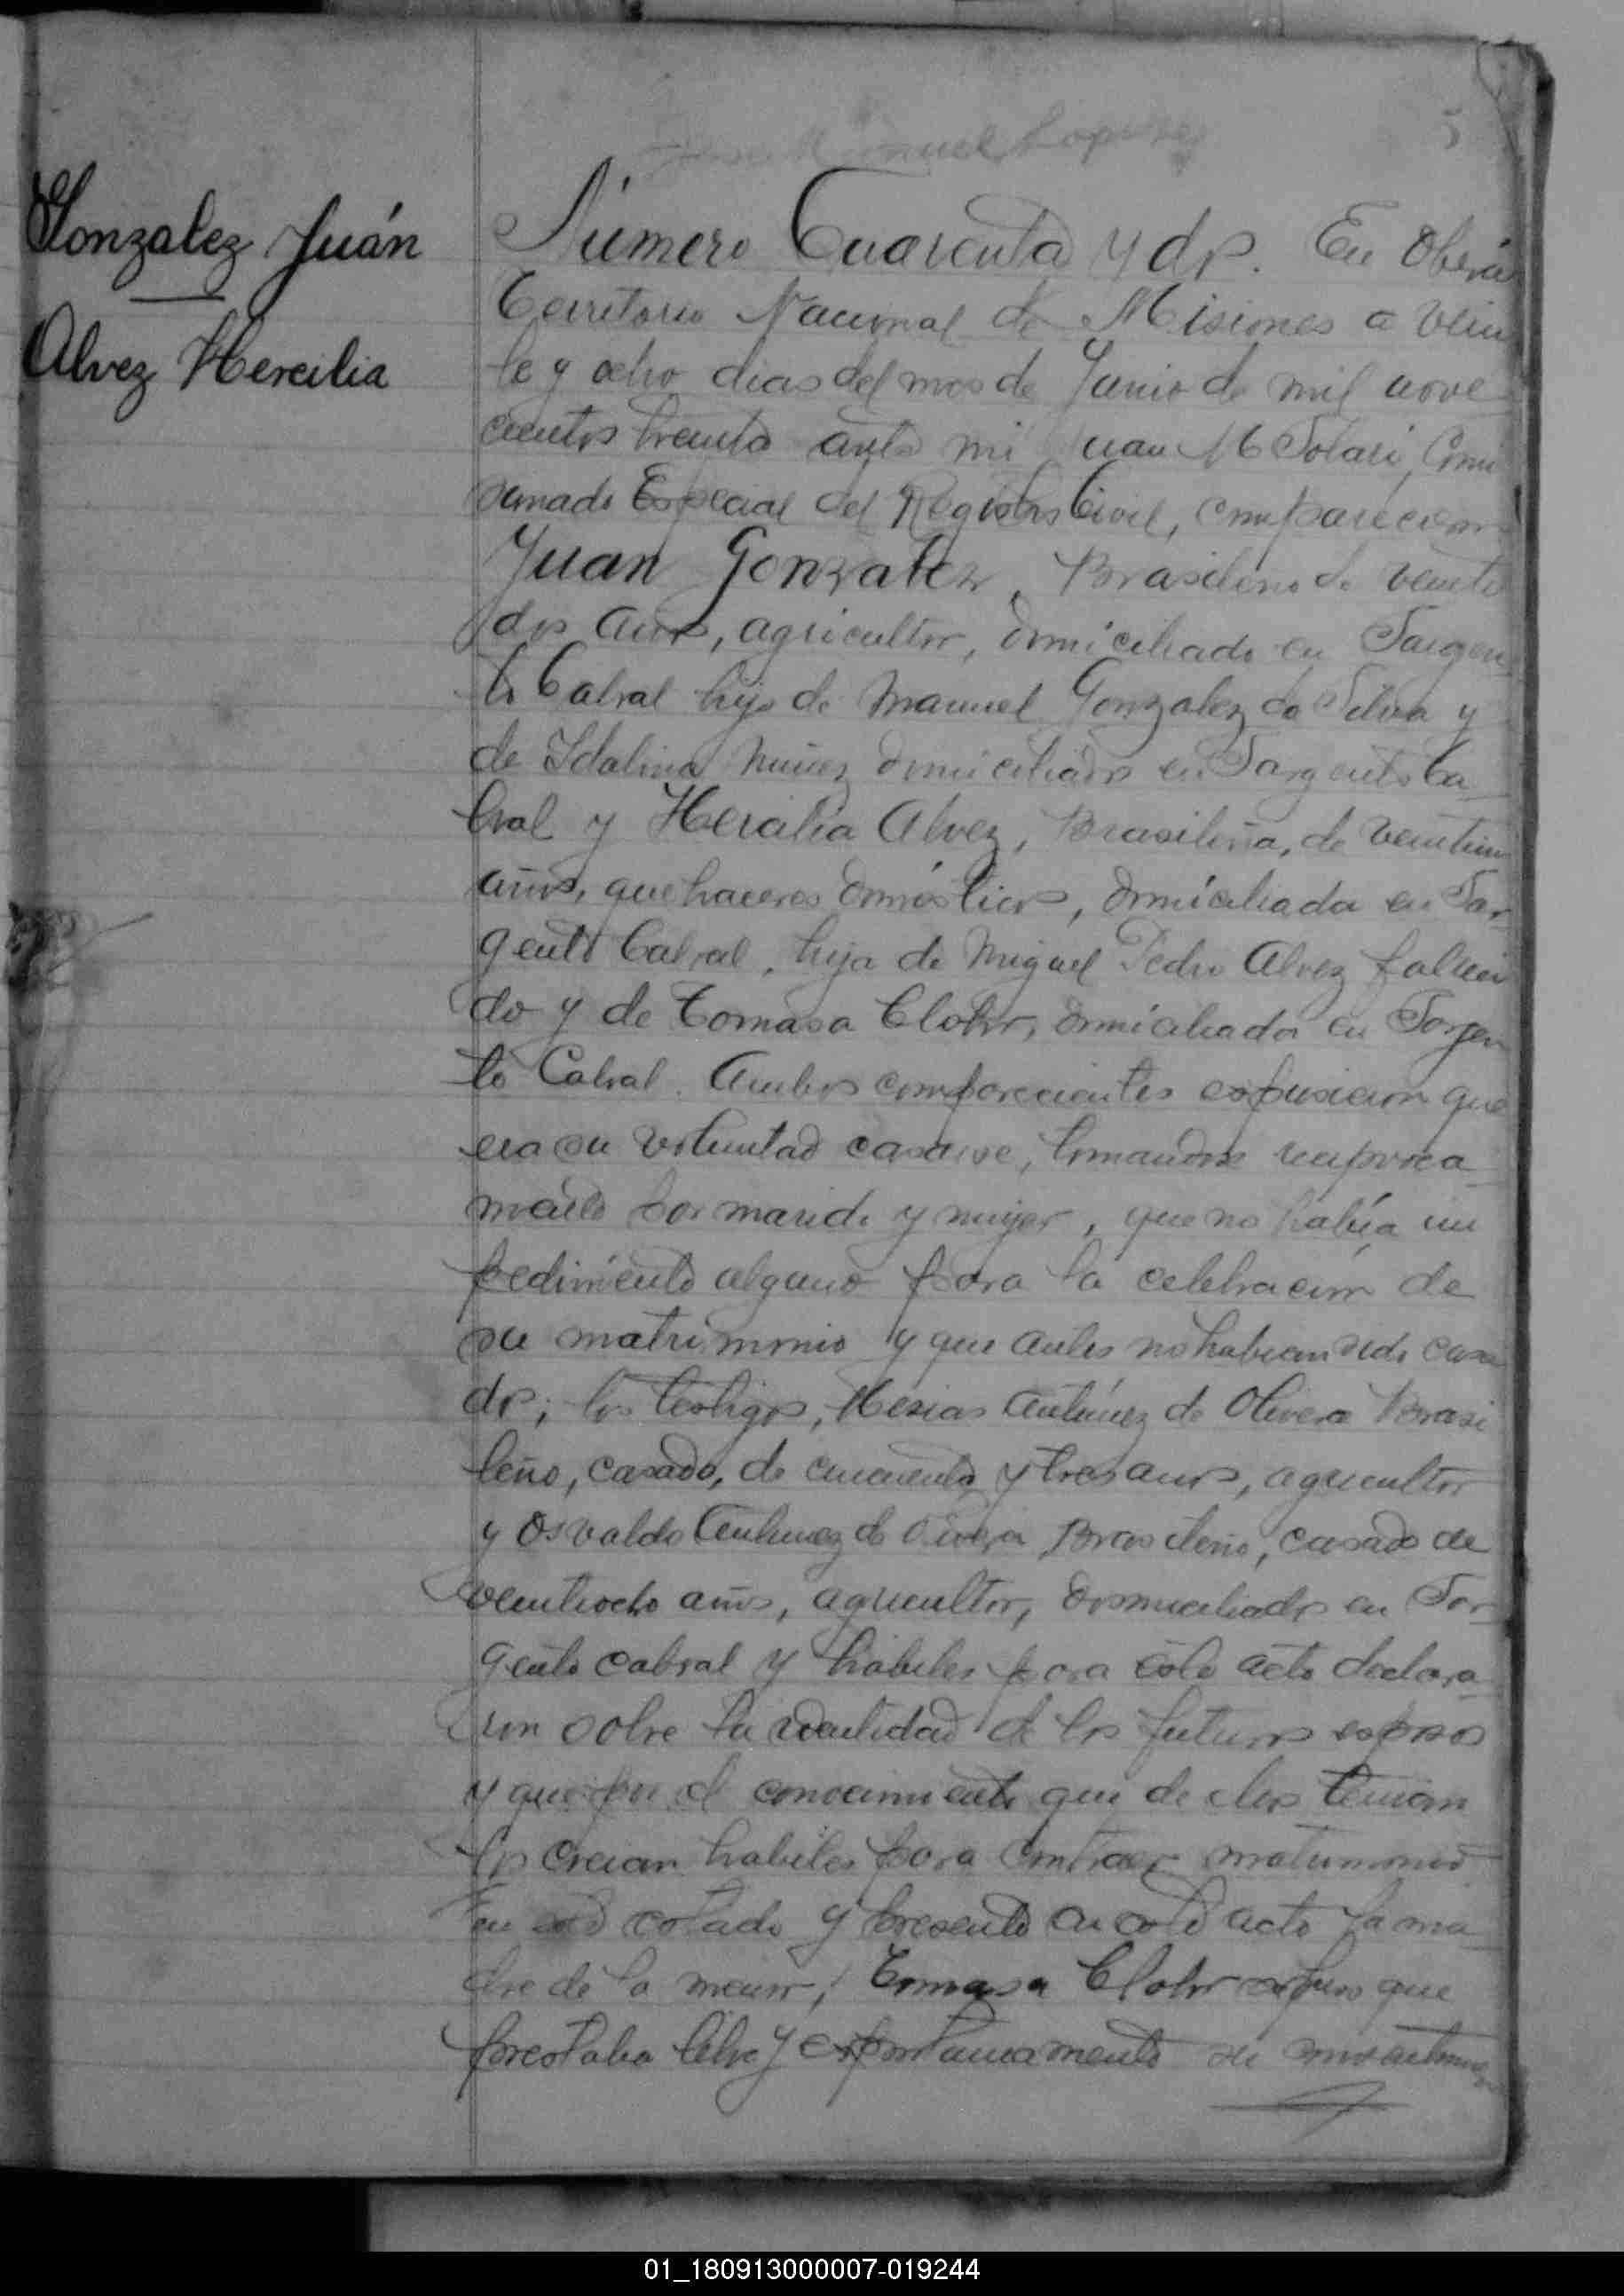 Gonzalez Juán
Alvez Hercilia
Número Cuarenta y dos. En Oberá
Territorio Nacional de Misiones a vein
te y ocho dias del mes de Junio de mil nove
cientos treinta ante mi Juan M Solari, Comi
sionado Especial del Registro Civil, comparecieron
Juan Gonzalez, Brasileño de veinte
dos años, agricultor, domiciliado en Sargen
to Cabral hijo de Manuel Gonzalez da Silva y
de Idalina Nuñez domiciliados en Sargento Ca
bral y Hercilia Alvez, Brasileña, de veintiun
años, quehaceres domésticos, domiciliada en Sar
gento Cabral, hija de Miguel Pedro Alvez falleci
do y de Tomasa Clohr, domiciliada en Sargen
to Cabral. Ambos comparecientes expusieron que
era su voluntad casarse, tomandose reciproca
mente por marido y mujer, que no había im
pedimento alguno para la celebracion de
su matrimonio y que antes no habian sido casa
dos; los testigos, Mesias Antúnez de Olivera Brasi
leño, casado, de cincuenta y tres años, agricultor
y Osvaldo Antunez de Olivera Brasileño, casado de
veintiocho años, agricultor, domiciliados en Sar
gento Cabral y hábiles para este acto declara
ron sobre la identidad de los futuros esposos
y que por el conocimiento que de ellos tenian
los creian habiles para contraer matrimonio
En este estado y presente en este acto la ma
dre de la menor, Tomasa Clohr expuso que
prestaba libre y espontaneamente su consentimiento
01_180913000007-019244